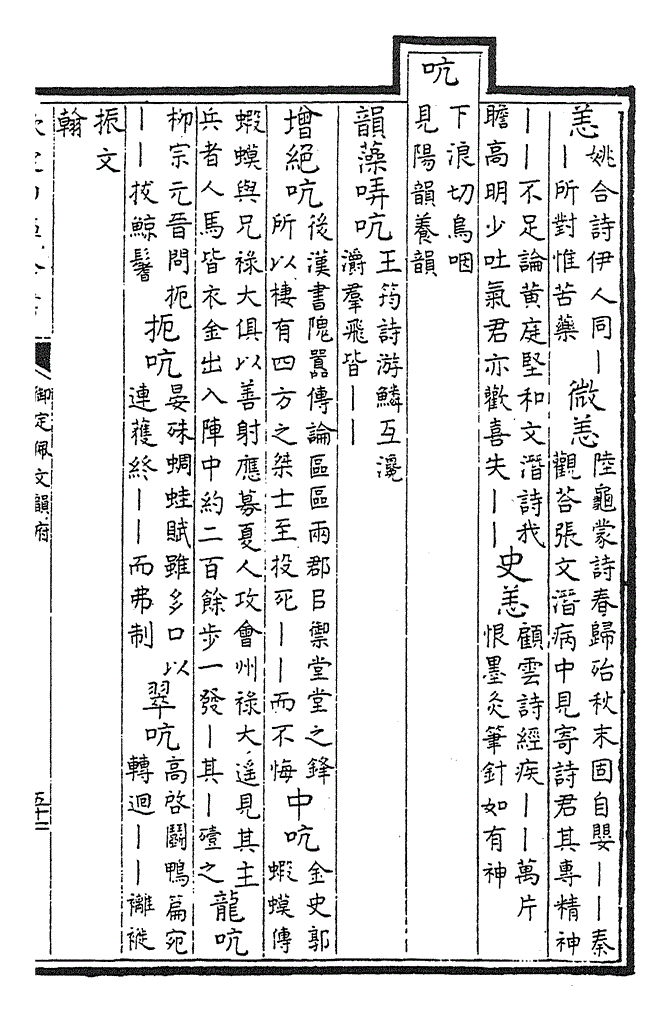 恙
姚合詩伊人同丨
丨所對惟苦藥
微恙
陸龜蒙詩春歸殆秋末固自嬰丨丨秦
觀荅張文潛病中見寄詩君其專精神
丨丨不足論黃庭堅和文潛詩我
瞻高明少吐氣君亦歡喜失丨丨
史恙
顧雲詩經疾丨丨萬片
恨墨灸筆針如有神
吭
下浪切鳥咽
見陽韻養韻
韻藻哢吭
王筠詩游鱗互瀺
灂羣飛皆丨丨
增絕吭
後漢書隗囂傳論區區兩郡㠯禦堂堂之鋒
所以棲有四方之桀士至投死丨丨而不悔
中吭
金史郭
蝦蟆傳
蝦蟆與兄祿大俱以善射應募夏人攻會州祿大遥見其主
兵者人馬皆衣金出入陣中約二百餘步一發丨其丨殪之
龍吭
柳宗元晉問扼
丨丨拔鯨鬐
扼吭
晏殊蜩蛙賦雖多口以
連蒦終丨丨而弗制
翠吭
高啓鬬鴨篇宛
轉迴丨丨褵褷
振文
翰
御定佩文韻府
五十二